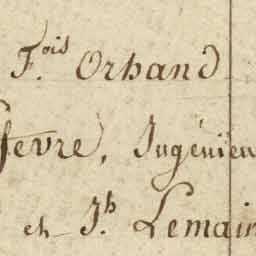 F.ois Orhand
fevre, Ingénieu
et J.h Lemair